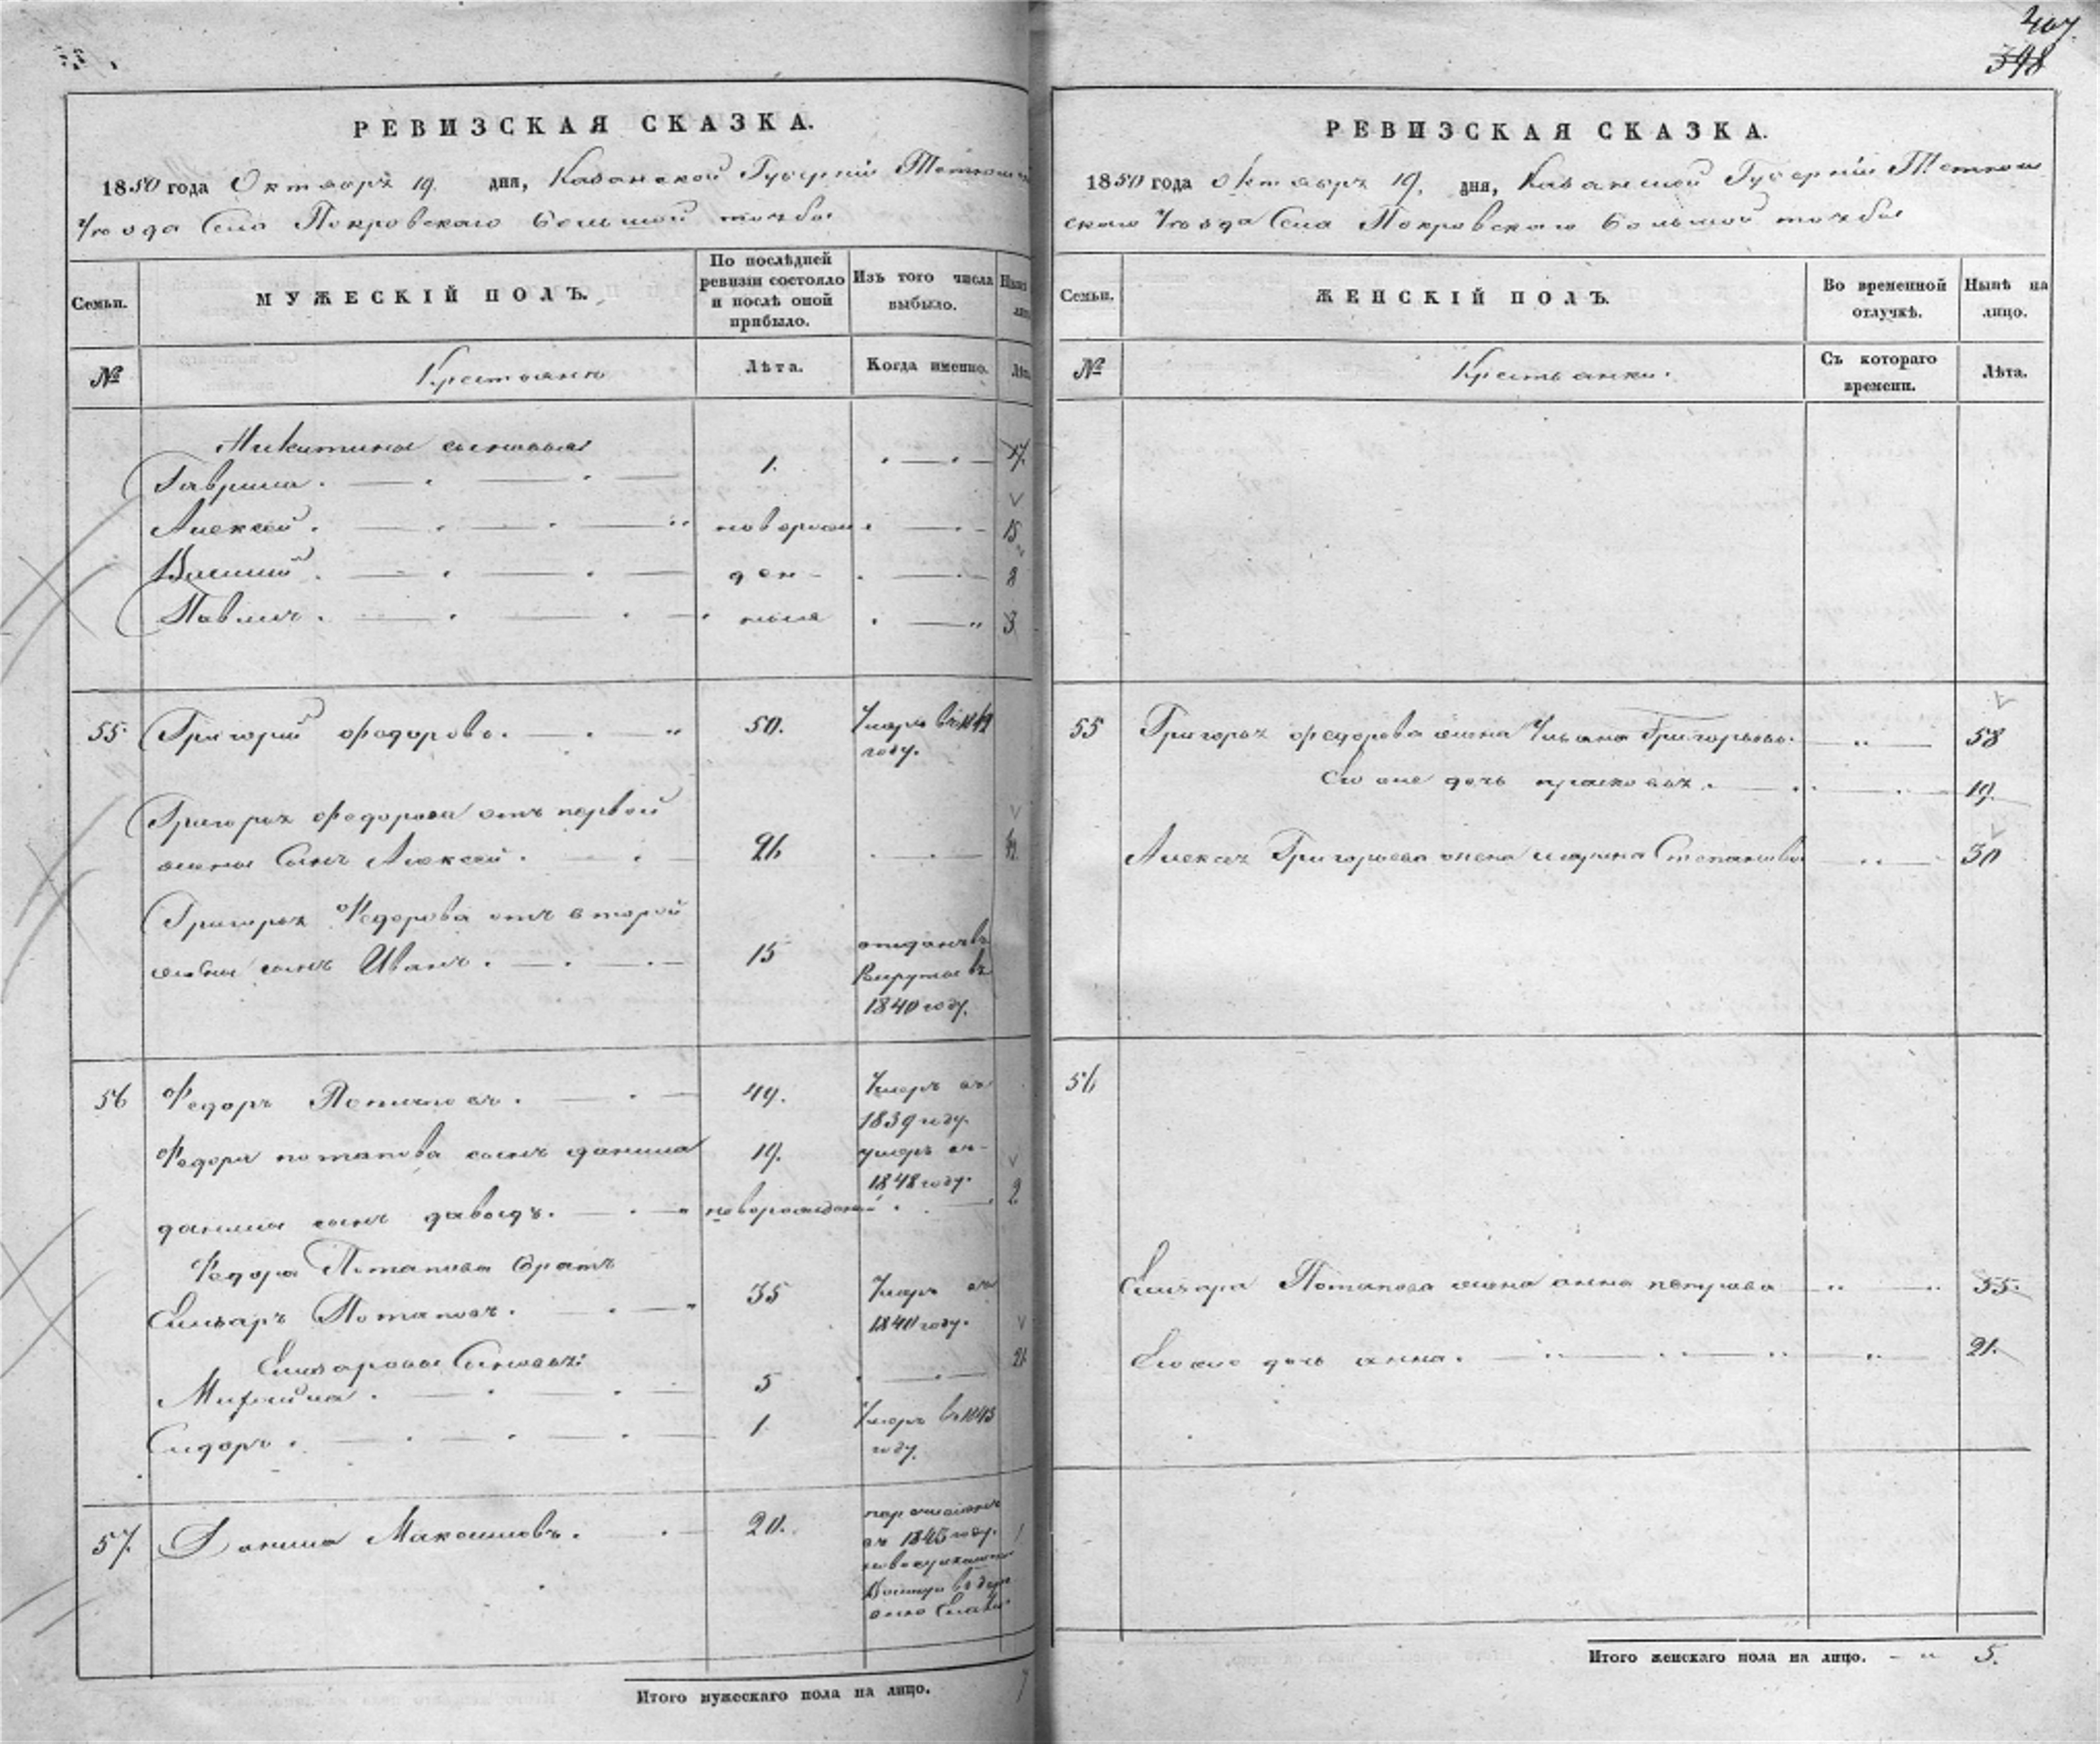 407.
398
РЕВИЗСКАЯ СКАЗКА.
1850 года Октября 19. дня, Казанской Губерніи
уезда Села Покровскаго
Семьи.
МУЖЕСКІЙ ПОЛЪ.
По послѣдней
ревизіи состояло
и послѣ оной
прибыло.
Изъ того числа
выбыло.
№
Крестьяне
Лѣта.
Когда именно.
Гаврила. 1.
Алексей. новорож 15
Василий. ден- 8
Павелъ. ные 3
55. Григорий Федоровъ. 50. Умеръ въ
году.
Григорья Федорова отъ первой
жены Сынъ Алексей. 26
Григорья Федорова отъ второй
жены сынъ Иванъ. 15 отданъ въ
Рекруты въ
1840 году.
56 Федоръ Потаповъ. 49. Умеръ въ
1839 году.
Федора потапова сынъ данила 19. умеръ въ
1848 году.
данилы сынъ давыдъ. новорожденой 2
Федора Потапова братъ
Елизаръ Потаповъ. 35 Умеръ въ
1840 году.
Елизаровы Сыновья: 21
5
Сидоръ. 1 Умеръ въ 1843
году.
57. Данила Максимовъ. 20.
въ 1845 году.
Итого мужескаго пола на лицо. 7
РЕВИЗСКАЯ СКАЗКА.
1850 года октября 19. дня, Казанской Губерніи Тетюш
скаго уезда Села Покровскаго
Семьи.
ЖЕНСКІЙ ПОЛЪ.
Во временной
отлучкѣ.
Нынѣ на
лицо.
№
Крестьянки.
Съ котораго
времени.
Лѣта.
55 Григорья федорова жена Ульяна Григорьева. 58
Ево же дочь прасковья. 19.
Алексея Григорьева жена марина Степанова 30
56
Елизара Потапова жена анна петрова 55.
Ево же дочь анна. 21.
Итого женскаго пола на лицо. 5.